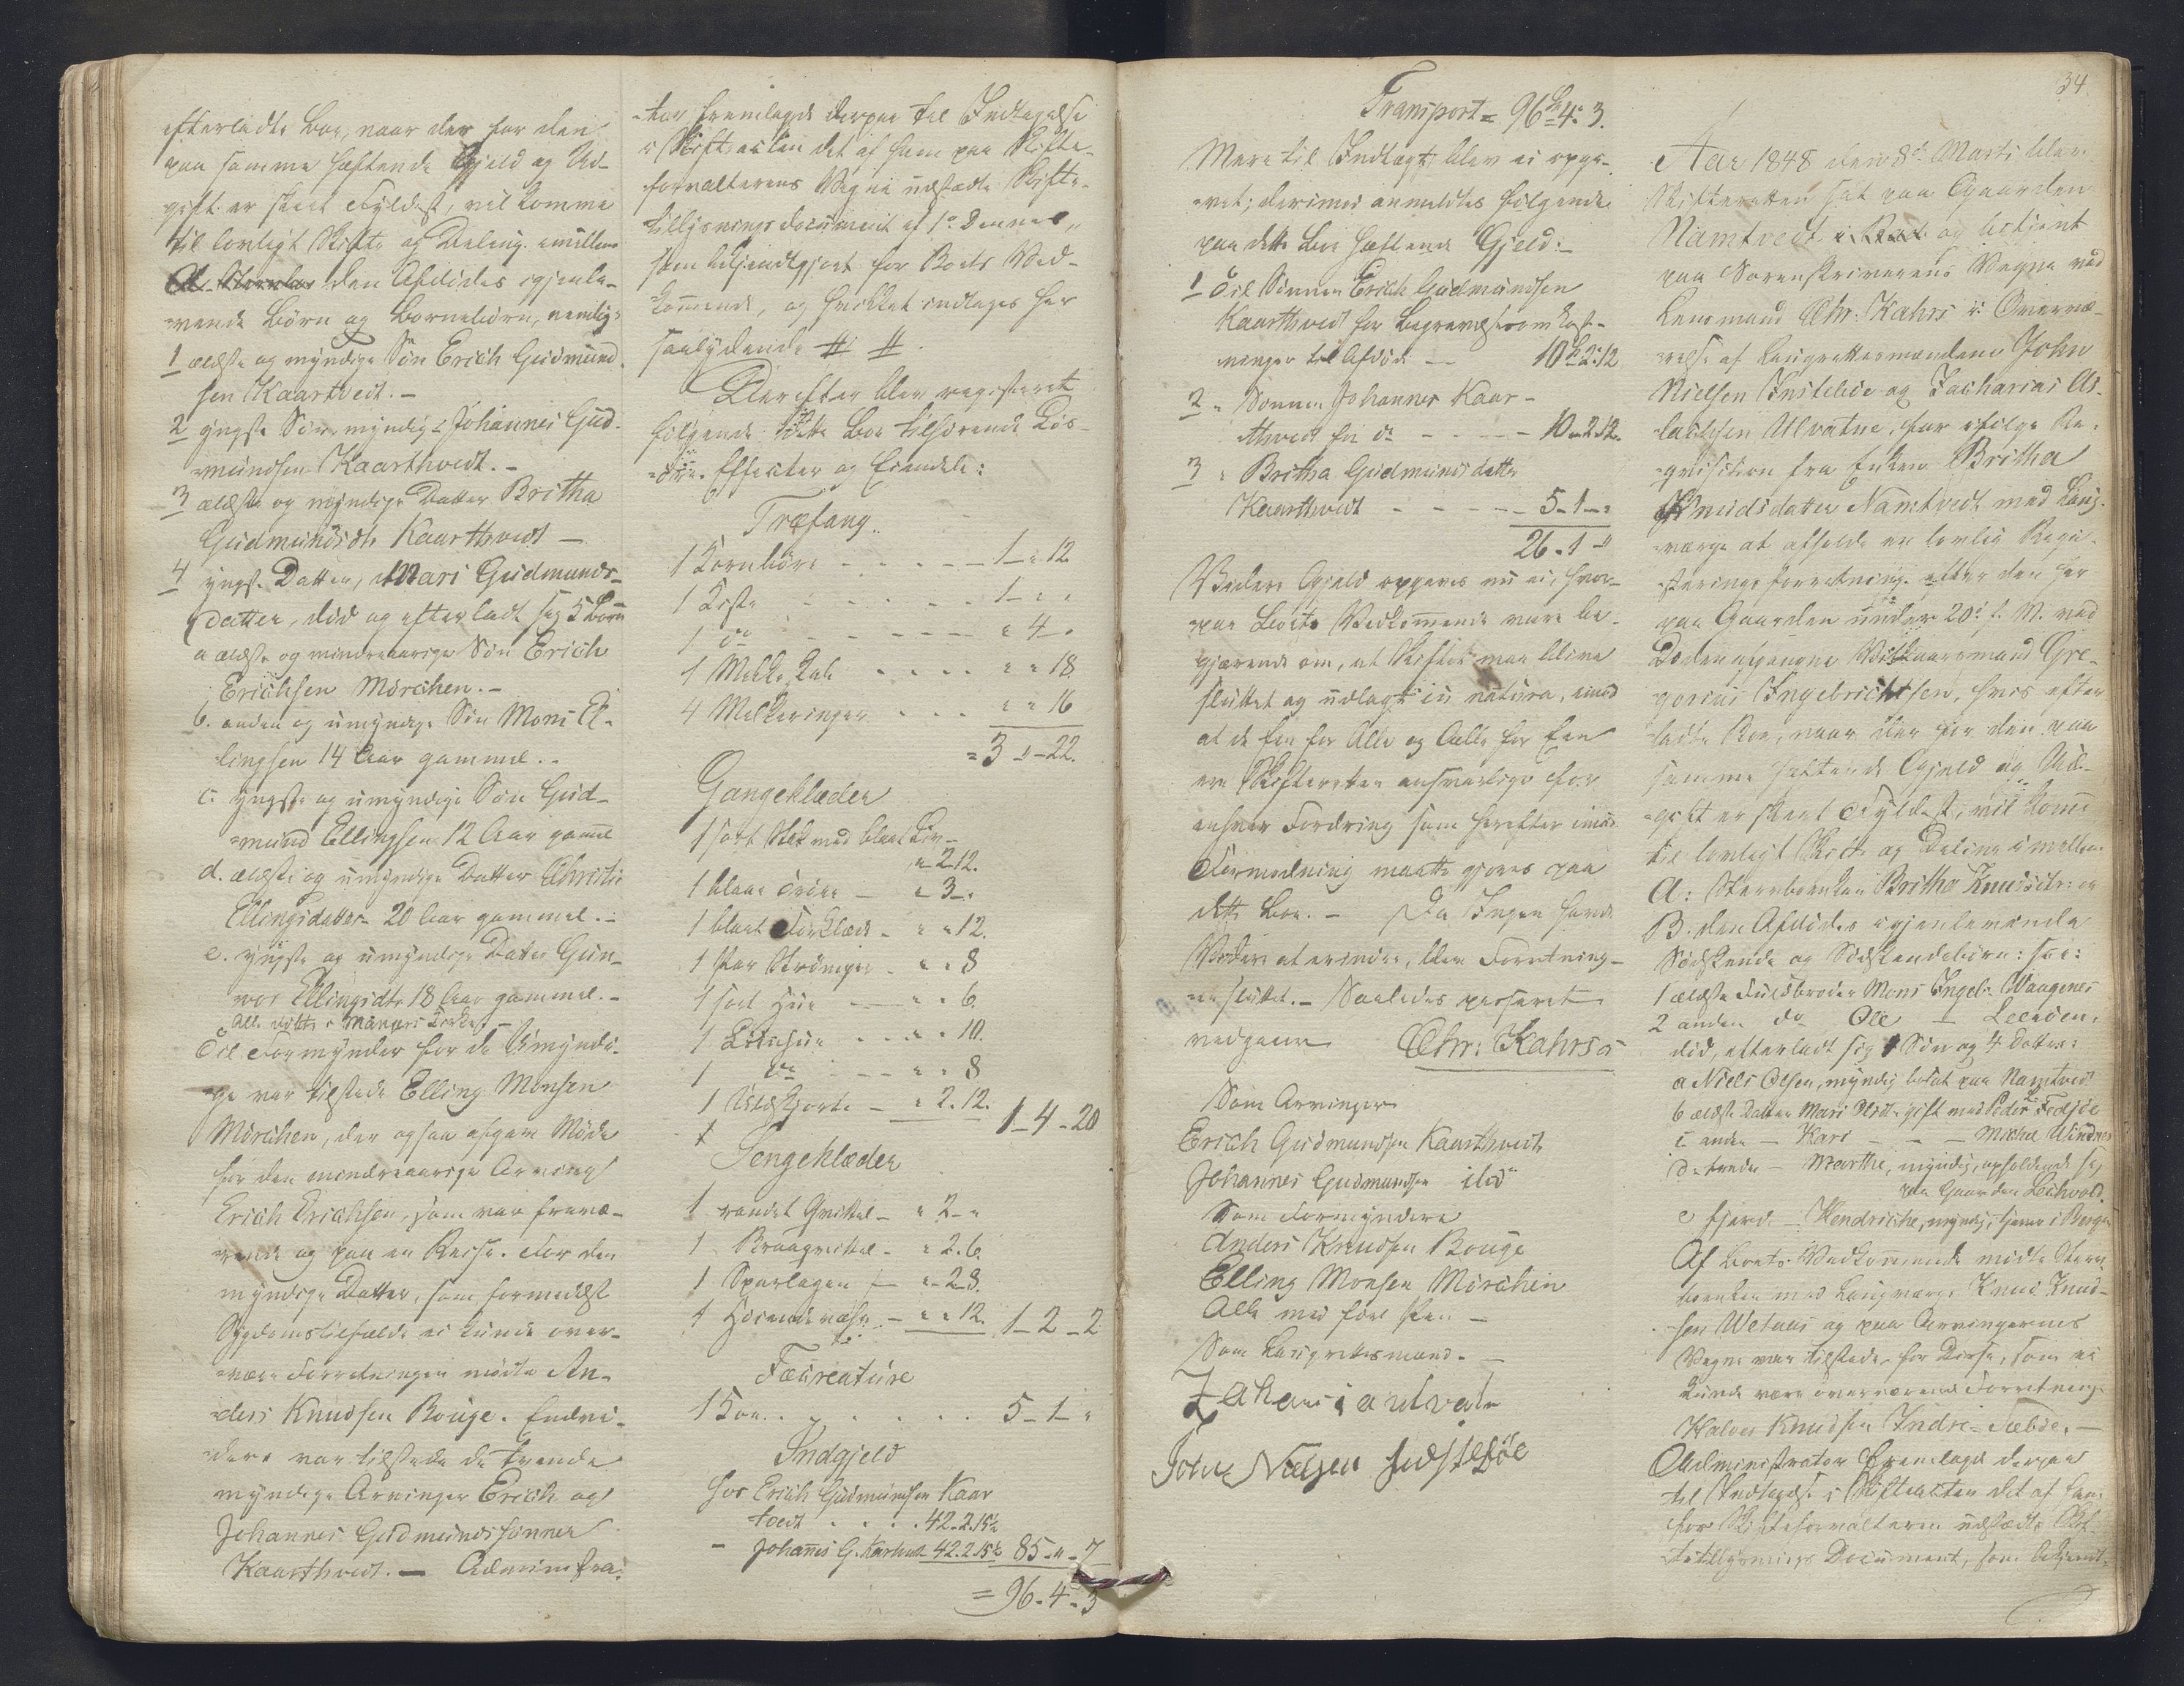 efterladte Boe, naar der for den
paa samme hæftende Gjeld og Ud-
gift er skeet Fyldest, vil komme
til lovligt Skifte og Deling imellem
den Afdødes igjenle-
vende Børn og Børnebørn, nemlig:
1 ældste og myndige Søn Erich Gudmund-
sen Kaartvedt.-
2 yngste Søn, myndig, Johannes Gud-
mundsen Kaarthvedt.-
3 ældste og myndige Datter Britha
Gudmundsdtr Kaarthvedt -
4 yngste Datter, Mari Gudmunds-
datter, død og efterladt sig 5 Børn
a ældste og mindreaarige Søn Erich
Erichsen Mörchen.-
b. anden og umyndige Søn Mons El-
lingsen 14 Aar gammel.-
c. yngste og umyndige Søn Gud-
mund Ellingsen 12 Aar gammel
d. ældste og umyndige Datter Christi
Ellingsdatter 20 Aar gammel.-
e. yngste og umyndige Datter Gun-
vor Ellingsdtr 18 Aar gammel.-
Alle døbte i Mangers Kirke.-
Til Formynder for de Umyndi-
ge var tilstede Elling Monsen
Mörchen, der ogsaa afgav Møde
for den mindreaarige Arving
Erich Erichsen, som var fravæ-
rende og paa en Reise. For den
myndige Datter, som formedelst
Sygdomstilfælde ei kunde over-
være Forretningen mødte An-
ders Knudsen Bouge. Endvi-
dere var tilstede de tvende
myndige Arvinger Erich og
Johannes Gudmundssønner
Kaarthvedt. — Administra-
tor fremlagde derpaa til Indtagelse
i Skifteacten det af ham paa Skifte-
forvalterens Vegne udstædte Skifte-
tillysningsdocument af 1e Dennes,
som bekjendtgjort for Boets Ved-
kommende, og hvilket indtages her
saalydende # #.
Derefter blev registeret
følgende dette Boe tilhørende Løs-
øre, Effecter og Eiendele:
Træfang.
1 Kornbøre - - - - 1 - " 12
1 Kiste - - - - 1 - " "
1 do - - - - " 4 "
1 Melke - - - - " " 18
4 Melkeringer - - - " " 16
= 3 - 1 - 22.
Gangeklæder
1 sort Stak med blaat Liv -
" 2 12.
1 blaa Trøie — " 3 - "
1 blaat Forklæde - " " 12.
1 Par Strömper - " " 8
1 sort Hue — " " 6
1 " " 10.
1 do - - - " " 8
1 Uldskjorte — " 2. 12. 1 - 4 - 20
Sengeklæder
1 randet Grettel - " 2 - "
1 - " 2. 6.
1 Sparlagen — " 2 8.
1 — " " 12. 1 - 2 - 2
Fæcreature
1 Koe. - - - - - 5 - 1 - "
Indgjeld
hos Erich Gudmundsen Kaar
tvedt - - - 42. 2. 15½
- Johannes G. Karhvdt 42. 2. 15½ 85 - " - 7
= 96 - 4 - 3
Transport = 96 4. 3.
Mere til Indtægt blev ei opgi-
vet; derimod anmeldtes følgende
paa dette Boe hæftende Gjeld:-
1 Til Sønnen Erich Gudmundsen
Kaarthvedt for Begravelsesomkost-
ninger til Afdøde — 10 2. 12
2 " Sønnen Johannes Kaar-
thvedt for do - - - - 10 - 2 12.
3 " Britha Gudmundsdatter
Kaarthvedt - - - - 5 - 1 - "
26 - 1 - "
Videre Gjeld opgaves nu ei, hvor-
paa Boets Vedkommende vare be-
gjærende om, at Skiftet maa blive
sluttet og udlagt in natura, imod
at de Een for Alle og Alle for Een
ere Skifteretten ansvarlige for
enhver Fordring som herefter imod
Formodning maatte gjøres paa
dette Boe. — Da Ingen havde
Videre at erindre, blev Forretning-
en sluttet. - Saaledes passeret
vedgaaes Chr: Kahrs
Som Arvinger
Erich Gudmundsen Kaarthvedt
Johannes Gudmundsen ibid
Som Formyndere
Anders Knudsen Bouge
Elling Monsen Mörchin
Alle med ført Pen —
Som Laugrettesmænd. —
Zakarias a ulvatn
John Nielsen indsteböe
34
Aar 1848 den 8de Marts blev
Skifteretten sat paa Gaarden
Namtvedt og betjent
paa Sorenskriverens Vegne ved
Lensmand Chr. Kahrs i Overvæ-
relse af Laugrettesmændene John
Nielsen Instebøe og Zacharias As-
lachsen Ulvatne, for ifølge Re-
qvisition fra Enken Britha
Knudsdatter Namtvedt med Laug-
værge at afholde en lovlig Regi-
streringsforretning efter den her
paa Gaarden under 20de f. M. ved
Døden afgangne Vilkaarsmand Gre-
gorius Ingebrichtsen, hvis efter-
ladte Boe, naar der for den paa
samme hæftende Gjeld og Ud-
gift er skeet Fyldest, vil komme
til lovligt Skifte og Deling imellem
A: Stervboenken Britha Knudsdtr: og
B. den Afdødes igjenlevende
Sødskende og Sødskendebørn: som:
1 ældste Fuldbroder Mons Ingebr. Waagenes
2 anden do Ole — Leeröen,
død, efterladt sig 1 Søn og 4 Døttre:
a Niels Olsen, myndig bosat paa Namtvedt
b ældste Datter Mari Olsdtr gift med Peder Fedsöe
c anden — Kari — — — Michel Windnes
d. tredie — Marthe, myndig, opholdende sig
paa Gaarden Lethvold.
e fjerde — Hendriche, myndig, tjener i Bergen
Af Boets Vedkommende mødte Sterv-
boenken med Laugværge Knud Knud-
sen Wetaas og paa Arvingernes
Vegne var tilstede, for Disse, som ei
kunde være overværende Forretningen
Halvor Knudsen Indre-Sæböe. —
Administrator fremlagde derpaa
til Indtagelse i Skifteacten det af ham
for Skifteforvalteren udstædte Skif-
tetillysnings Document, som bekjendt-